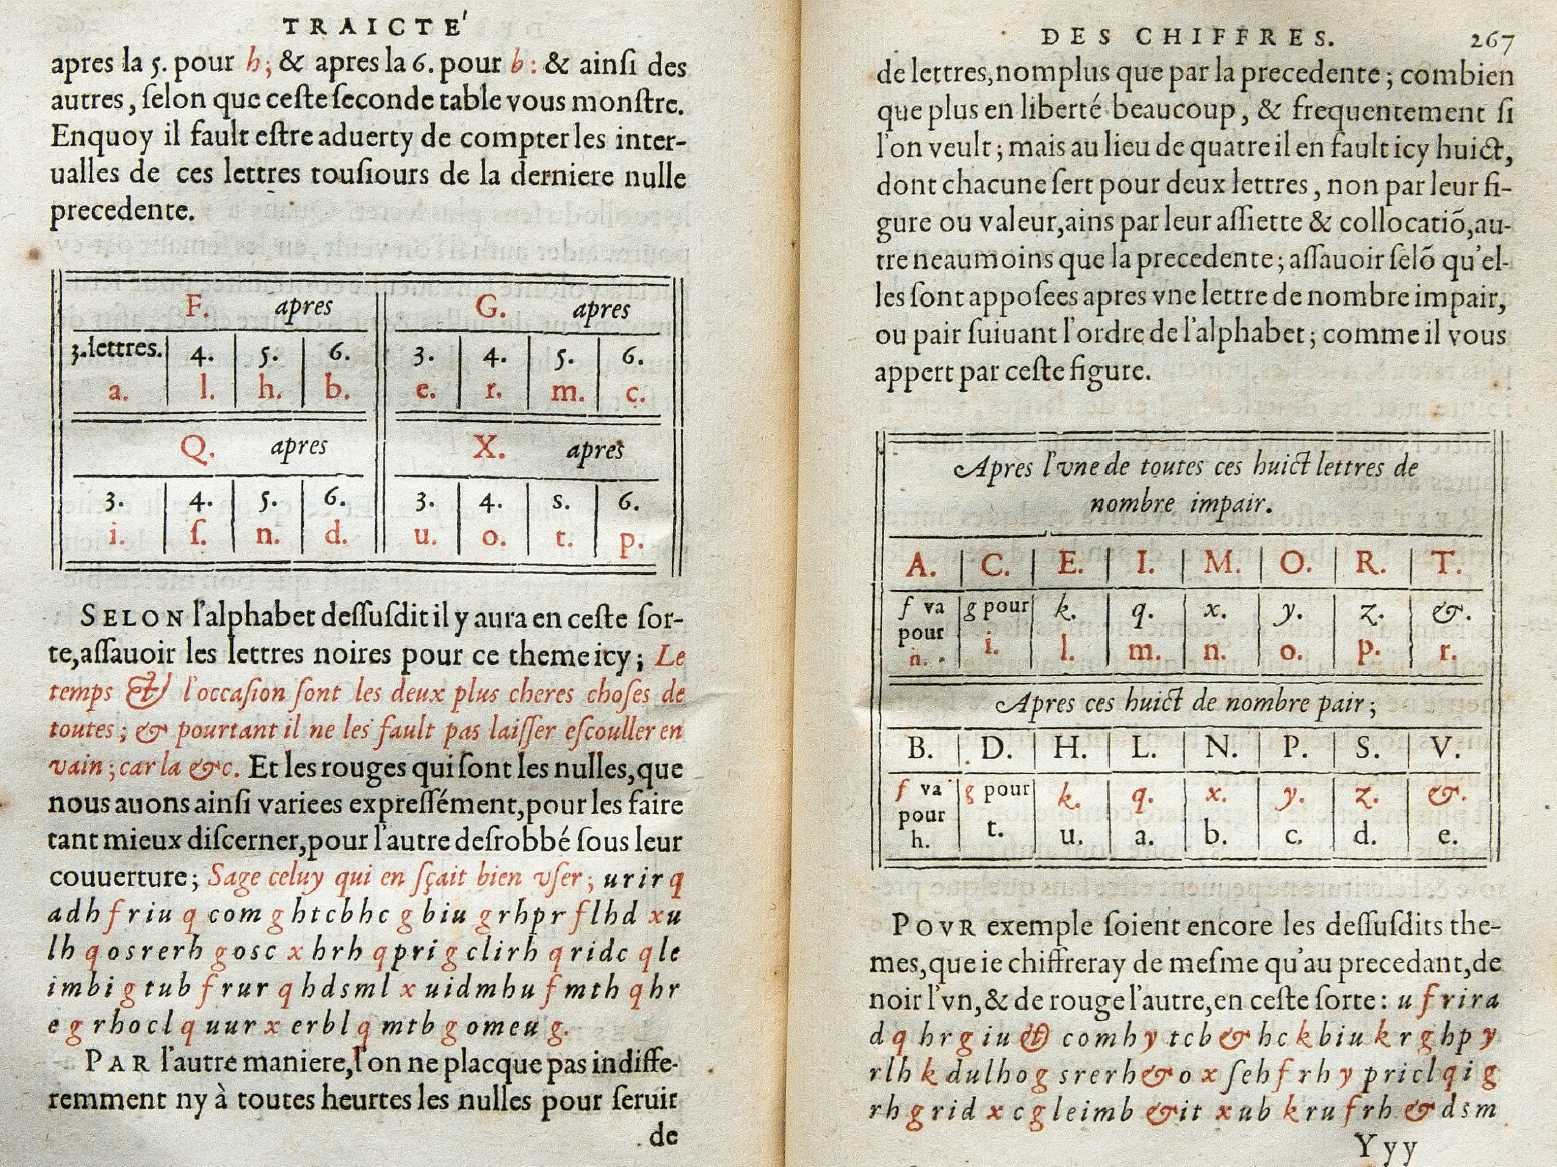 TRAICTE'
apres la 5. pour h; & apres la 6. pour b: & ainſi des
autres, ſelon que ceſte ſeconde table vous monſtre.
Enquoy il fault eſtre aduerty de compter les inter-
ualles de ces lettres touſiours de la derniere nulle
precedente.
F. apres G. apres
3.lettres. 4. 5. 6. 3. 4. 5. 6.
a. l. h. b. e. r. m. c.
Q. apres X. apres
3. 4. 5. 6. 3. 4. s. 6.
i. ſ. n. d. u. o. t. p.
SELON l'alphabet deſſuſdit il y aura en ceſte ſor-
te, aſſauoir les lettres noires pour ce theme icy; Le
temps & l'occaſion ſont les deux plus cheres choſes de
toutes; & pourtant il ne les fault pas laiſſer eſcouller en
vain; car la &c. Et les rouges qui ſont les nulles, que
nous auons ainſi variees expreſſément, pour les faire
tant mieux diſcerner, pour l'autre deſrobbé ſous leur
couuerture; Sage celuy qui en ſçait bien vſer; urirq
adhfriu q com ghtcbhc g biu grhprflhd xu
lh qosrerh gosc x hrh qprigclirh qridc qle
imbigtub frur qhdsml xuidmhufmth qhr
e g rhoclq uur x erblqmtb gomeu g.
PAR l'autre maniere, l'on ne placque pas indiffe-
remment ny à toutes heurtes les nulles pour ſeruir
de
DES CHIFFRES. 267
de lettres, nomplus que par la precedente; combien
que plus en liberté beaucoup, & frequentement ſi
l'on veult; mais au lieu de quatre il en fault icy huict,
dont chacune ſert pour deux lettres, non par leur fi-
gure ou valeur, ains par leur aſſiette & collocatiõ, au-
tre neaumoins que la precedente; aſſauoir ſelõ qu'el-
les ſont appoſees apres vne lettre de nombre impair,
ou pair ſuiuant l'ordre de l'alphabet; comme il vous
appert par ceſte figure.
Apres l'vne de toutes ces huict lettres de
nombre impair.
A. C. E. I. M. O. R. T.
f va pour g pour k. q. x. y. z. &.
n. i. l. m. n. o. p. r.
Apres ces huict de nombre pair;
B. D. H. L. N. P. S. V.
f va pour g pour k. q. x. y. z. &.
h. t. u. a. b. c. d. e.
POVR exemple ſoient encore les deſſuſdits the-
mes, que ie chiffreray de meſme qu'au precedant, de
noir l'vn, & de rouge l'autre, en ceſte ſorte: ufrira
dq hrgiu & comhy tcb & hc kbiu krghpy
rlh kdulhog srerh&o xſehfrhy priclqig
rhgrid xcgleimb &it xub krufrh &dsm
Yyy